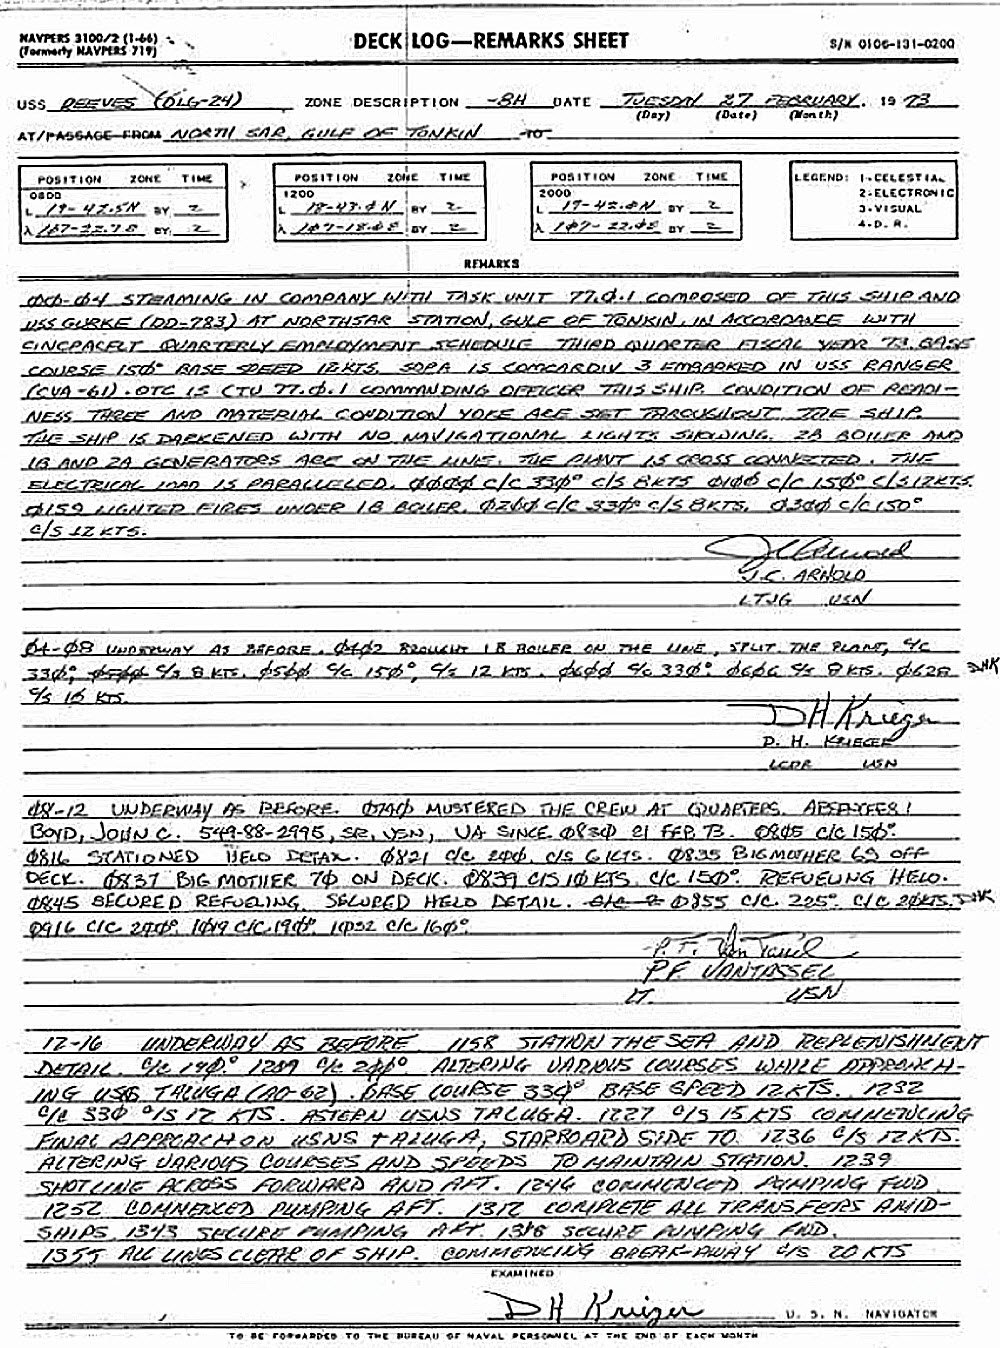 NAVPERS 3100/2 (1-66)
(Formerly NAVPERS 719)
DECK LOG—REMARKS SHEET
S/N 0106-131-0200
USS REEVES (DLG-24) ZONE DESCRIPTION -8H DATE TUESDAY 27 FEBRUARY, 19 73
(Day) (Date) (Month)
AT/PASSAGE FROM NORTH SAR, GULF OF TONKIN TO
POSITION ZONE TIME
0800
L 19-47.5N BY 2
λ 107-22.7E BY 2
POSITION ZONE TIME
1200
L BY 2
λ BY 2
POSITION ZONE TIME
2000
L BY 2
λ BY 2
LEGEND: 1-CELESTIAL
2-ELECTRONIC
3-VISUAL
4-D. R.
REMARKS
ØØ-Ø4 STEAMING IN COMPANY WITH TASK UNIT 77.Ø.1 COMPOSED OF THIS SHIP AND
USS GURKE (DD-783) AT NORTHSAR STATION, GULF OF TONKIN, IN ACCORDANCE WITH
CINCPACFLT QUARTERLY EMPLOYMENT SCHEDULE THIRD QUARTER FISCAL YEAR 73. BASE
COURSE 15Ø° BASE SPEED 12KTS. SOPA IS COMCARDIV 3 EMBARKED IN USS RANGER
(CVA-61). OTC IS CTU 77.Ø.1 COMMANDING OFFICER THIS SHIP. CONDITION OF READI-
NESS THREE AND MATERIAL CONDITION YOKE ARE SET THROUGHOUT THE SHIP.
THE SHIP IS DARKENED WITH NO NAVIGATIONAL LIGHTS SHOWING. 2B BOILER AND
1B AND 2A GENERATORS ARE ON THE LINE. THE PLANT IS CROSS CONNECTED. THE
ELECTRICAL LOAD IS PARALLELED. ØØØØ C/C 33Ø° C/S 8KTS Ø1ØØ C/C 15Ø° C/S 12KTS.
Ø159 LIGHTED FIRES UNDER 1B BOILER. Ø2ØØ C/C 33Ø° C/S 8KTS. Ø3ØØ C/C 15Ø°
C/S 12 KTS.
J.C. Arnold
J.C. ARNOLD
LTJG USN
Ø4-Ø8 UNDERWAY AS BEFORE. Ø4Ø2 BROUGHT 1B BOILER ON THE LINE, SPLIT THE PLANT, C/C
33Ø°, C/S 8 KTS. Ø5ØØ C/C 15Ø°, C/S 12 KTS. Ø6ØØ C/C 33Ø°. Ø6Ø6 C/S 8 KTS. Ø628 DHK
C/S 10 KTS.
DH Krieger
D. H. KRIEGER
LCDR USN
Ø8-12 UNDERWAY AS BEFORE. Ø74Ø MUSTERED THE CREW AT QUARTERS. ABSENTEES:
BOYD, JOHN C. 549-88-2995, SR, USN, UA SINCE Ø83Ø 21 FEB 73. Ø805 C/C 15Ø°.
Ø816 STATIONED HELO DETAIL. Ø821 C/C 2ØØ, C/S 6KTS. Ø835 BIG MOTHER 69 OFF
DECK. Ø837 BIG MOTHER 7Ø ON DECK. Ø839 C/S 1Ø KTS, C/C 15Ø°. REFUELING HELO.
Ø845 SECURED REFUELING. SECURED HELO DETAIL. Ø855 C/C 225° C/C 2ØKTS. DHK
Ø916 C/C 2ØØ°. 1Ø19 C/C 19Ø°. 1Ø32 C/C 16Ø°.
P.F. Van Tassel
P.F. VANTASSEL
LT. USN
12-16 UNDERWAY AS BEFORE 1158 STATION THE SEA AND REPLENISHMENT
DETAIL. C/C 19Ø° 12Ø9 C/C 2ØØ° ALTERING VARIOUS COURSES WHILE APPROACH-
ING USNS TALUGA (AO-62). BASE COURSE 33Ø° BASE SPEED 12KTS. 1232
C/C 33Ø C/S 12 KTS. ASTERN USNS TALUGA. 1227 C/S 15 KTS COMMENCING
FINAL APPROACH ON USNS TALUGA, STARBOARD SIDE TO. 1236 C/S 12KTS.
ALTERING VARIOUS COURSES AND SPEEDS TO MAINTAIN STATION. 1239
SHOTLINE ACROSS FORWARD AND AFT. 1246 COMMENCED PUMPING FWD.
1252 COMMENCED PUMPING AFT. 1312 COMPLETE ALL TRANSFERS AMID-
SHIPS. 1343 SECURE PUMPING AFT. SECURE PUMPING FWD.
1355 ALL LINES CLEAR OF SHIP. COMMENCING BREAK-AWAY C/S 20 KTS
EXAMINED
DH Krieger U. S. N. NAVIGATOR
TO BE FORWARDED TO THE BUREAU OF NAVAL PERSONNEL AT THE END OF EACH MONTH